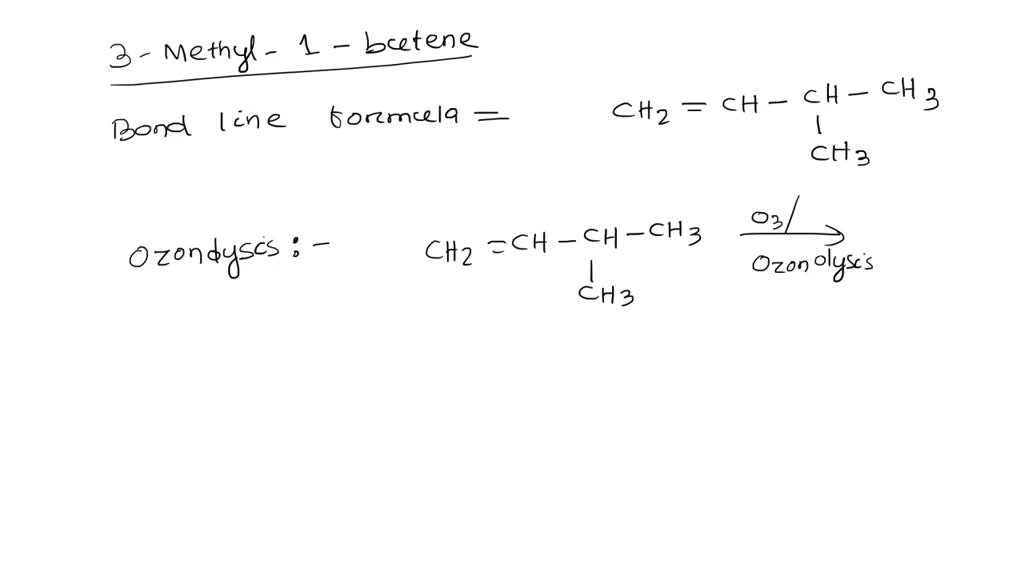 3 - Methyl - 1 - bcetene
Bond line formcela =
CH2 = CH - CH - CH3
|
CH3
Ozondyscs : -
CH2 = CH - CH - CH3
|
CH3
O3/
Ozonolyscs